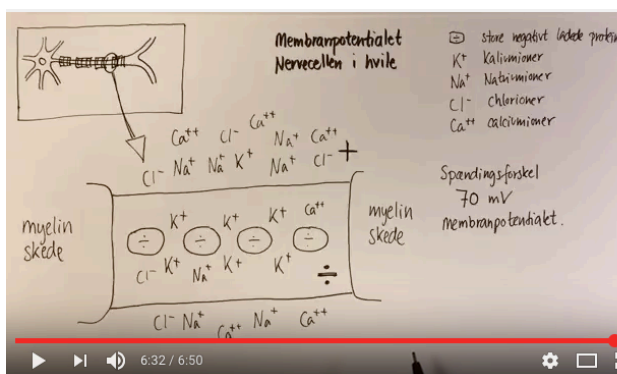 Membranpotentialet
Nervecellen i hvile
÷ store negativt ladede protein
K+ Kaliumioner
Na+ Natriumioner
Cl- chlorioner
Ca++ calciumioner
Spændingsforskel
70 mV
membranpotentialet.
Ca++ Cl- Ca++ Na+ Ca++
Cl- Na+ Na+ K+ Na+ Cl- +
myelin
skede
K+ K+ K+ Ca++
÷ ÷ ÷ ÷
Cl- K+ Na+ K+ K+ ÷
myelin
skede
Cl- Na+ Ca++ Na+ Ca++
6:32 / 6:50